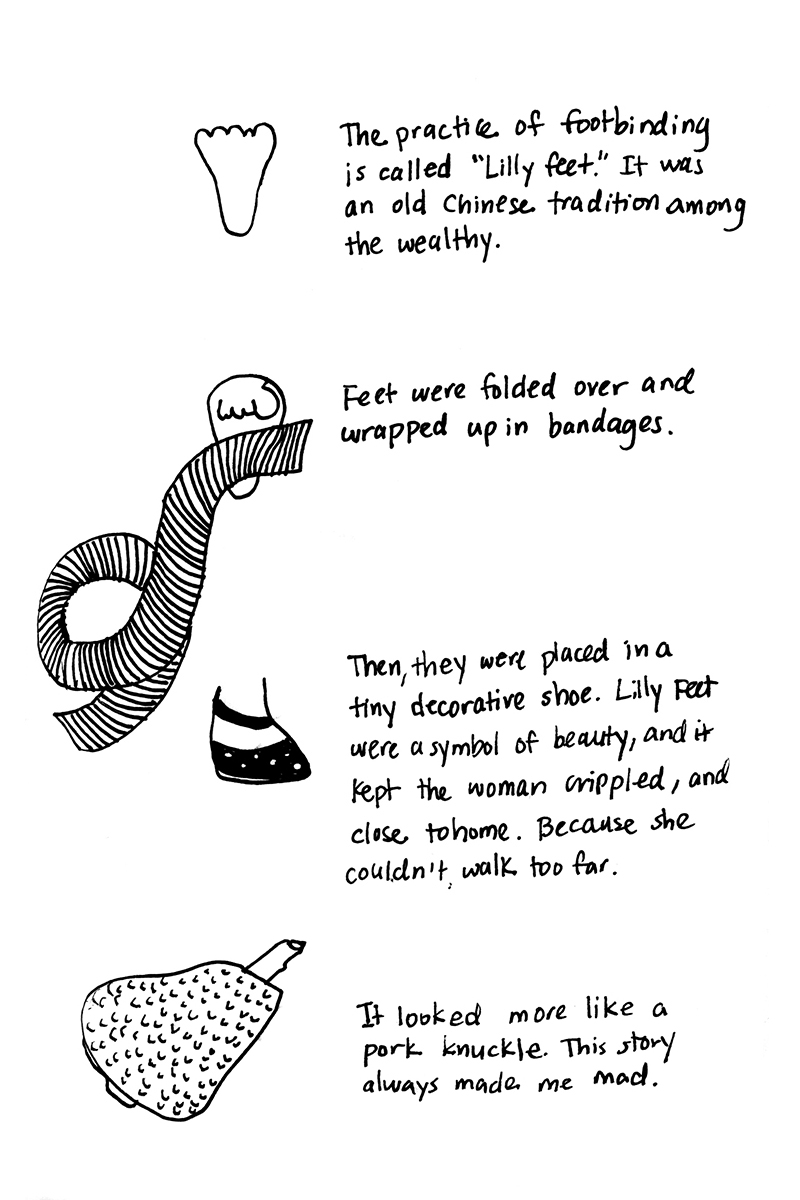 The practice of footbinding
is called "Lilly feet." It was
an old Chinese tradition among
the wealthy.
Feet were folded over and
wrapped up in bandages.
Then, they were placed in a
tiny decorative shoe. Lilly Feet
were a symbol of beauty, and it
kept the woman crippled, and
close to home. Because she
couldn't walk too far.
It looked more like a
pork knuckle. This story
always made me mad.